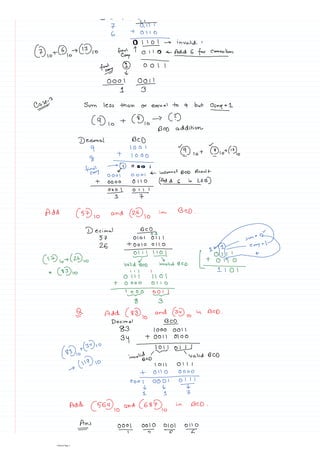 7 0111
6 + 0110
0 1101 → invalid
(7)10 + (6)10 → (13)10
final carry 0110 ← Add 6 for correction
final carry 1 0011
0001 0011
1 3
Case 3 Sum less than or equal to 9 but carry = 1
(9)10 + (8)10 → (?)
BCD addition.
Decimal BCD
9 1001
8 + 1000
(9)10 + (8)10 = (17)10
final carry 1 0001
0001 0001 ← incorrect BCD Result
+ 0000 0110 [Add 6 in LSB]
0001 0111
1 7
Add (57)10 and (26)10 in BCD
Decimal BCD
57 0101 0111
26 + 0010 0110
0111 1101
valid BCD invalid BCD
(57)10 + (26)10
= (83)10
1 1 1
0111 1101
+ 0000 0110
1000 0011
8 3
0111
+ 0110
1101
Q Add (83)10 and (34)10 in BCD.
Decimal BCD
83 1000 0011
34 + 0011 0100
1011 0111
invalid BCD valid BCD
(83)10 + (34)10
→ (117)10
1011 0111
+ 0110 0000
0001 0001 0111
1 1 7
Add (569)10 and (687)10 in BCD.
Ans 0001 0010 0101 0110